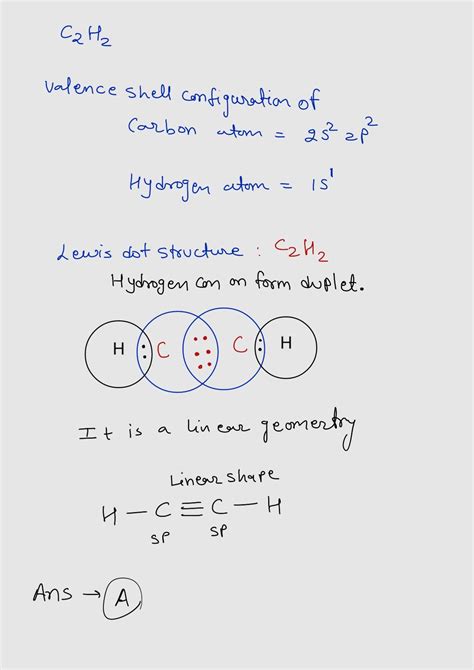 C₂H₂
valence shell configuration of
Carbon atom = 2s² 2p²
Hydrogen atom = 1s¹
Lewis dot structure : C₂H₂
Hydrogen can on form duplet.
H : C :: :: :: C : H
It is a linear geomertry
Linear shape
H — C ≡ C — H
sp sp
Ans → A